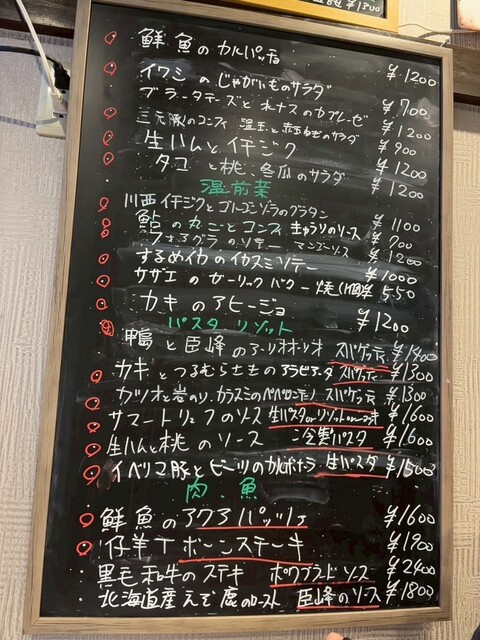 鮮魚のカルパッチョ ¥1200
イワシのじゃがいものサラダ ¥700
ブラータチーズと水ナスのカプレーゼ ¥1200
三元豚のコンフィ 温玉と赤玉ねぎのサラダ ¥900
生ハムとイチジク ¥1200
タコと桃、冬瓜のサラダ ¥1200
温前菜
川西イチジクとゴルゴンゾーラのグラタン ¥1100
鮎の丸ごとコンフィ きゅうりのソース ¥700
フォアグラのソテー マンゴーソース ¥1200
するめイカのイカスミソテー ¥1000
サザエのガーリックバター焼(1個) 550
カキのアヒージョ ¥1200
パスタ リゾット
鴨と臣峰のアーリオオーリオ スパゲッティ ¥1400
カキとつるむらさきのアラビアータ スパゲッティ ¥1300
カツオと岩のり、カラスミのペペロンチーノ スパゲッティ ¥1300
サマートリュフのソース 生パスタorリゾット ¥1600
生ハムと桃のソース 冷製パスタ ¥1600
イベリコ豚とビーツのカルボナーラ 生パスタ ¥1500
肉・魚
鮮魚のアクアパッツァ ¥1600
仔羊Tボーンステーキ ¥1900
黒毛和牛のステーキ ポワブラードソース ¥2400
北海道産えぞ鹿のロースト 臣峰のソース ¥1800